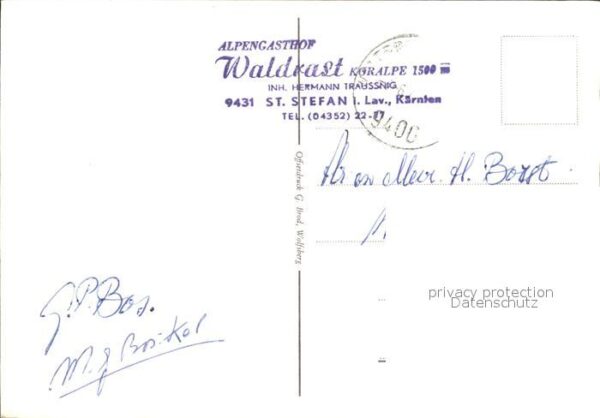 ALPENGASTHOF
Waldrast KORALPE 1500 m
INH. HERMANN TRAUSSNIG
9431 ST. STEFAN i. Lav., Kärnten
TEL. (04352) 22-
9400
H. Borst
Offsetdruck G. Brod, Wolfsberg
privacy protection
Datenschutz
G.P. Bos.
M. J. Bos-Kol